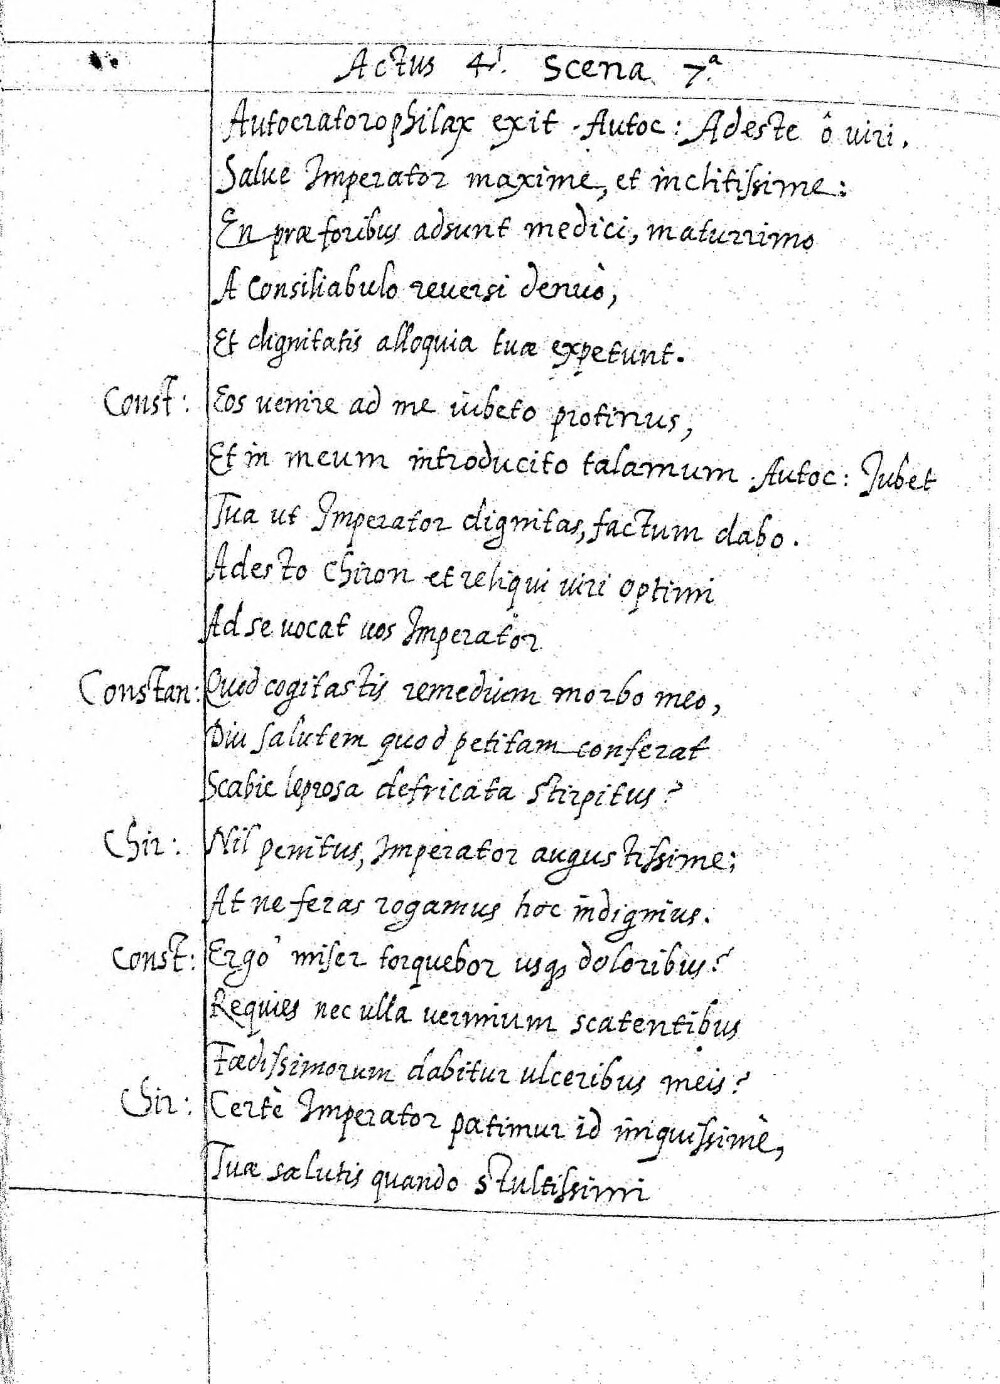 Actus 4ˢ. Scena 7ª
Autocratorophilax exit . Autoc: Adeste ô viri.
Salue Imperator maxime, et inclitissime:
En præ foribus adsunt medici, maturrimo
A Consiliabulo reuersi denuò,
Et dignitatis alloquia tuæ expetunt.
Const: Eos uenire ad me iubeto protinus,
Et in meum introducito talamum . Autoc: Jubet
Tua ut Imperator dignitas, factum dabo.
Adesto Chiron et reliqui uiri optimi
Ad se uocat uos Imperator
Constan: Quod cogitastis remedium morbo meo,
Diu salutem quod petitam conferat
Scabie leprosa defricata stirpitus?
Chir: Nil penitus, Imperator augustissime;
At ne feras rogamus hoc indignius.
Const: Ergo miser torquebor usq; doloribus?
Requies nec ulla uermium scatentibus
Fædissimorum dabitur ulceribus meis?
Chir: Certè Imperator patimur id iniquissimè,
Tuæ salutis quando stultissimi